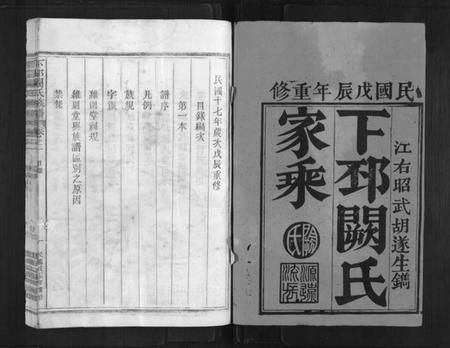 民國戊辰年重修
江右昭武胡遂生鐫
下邳闕氏
家乘
源遠流長
民國十七年歲次戊辰重修
目錄編次
第一本
譜序
凡例
字派
族規
維則堂祠規
維則堂與族譜區別之原因
禁條